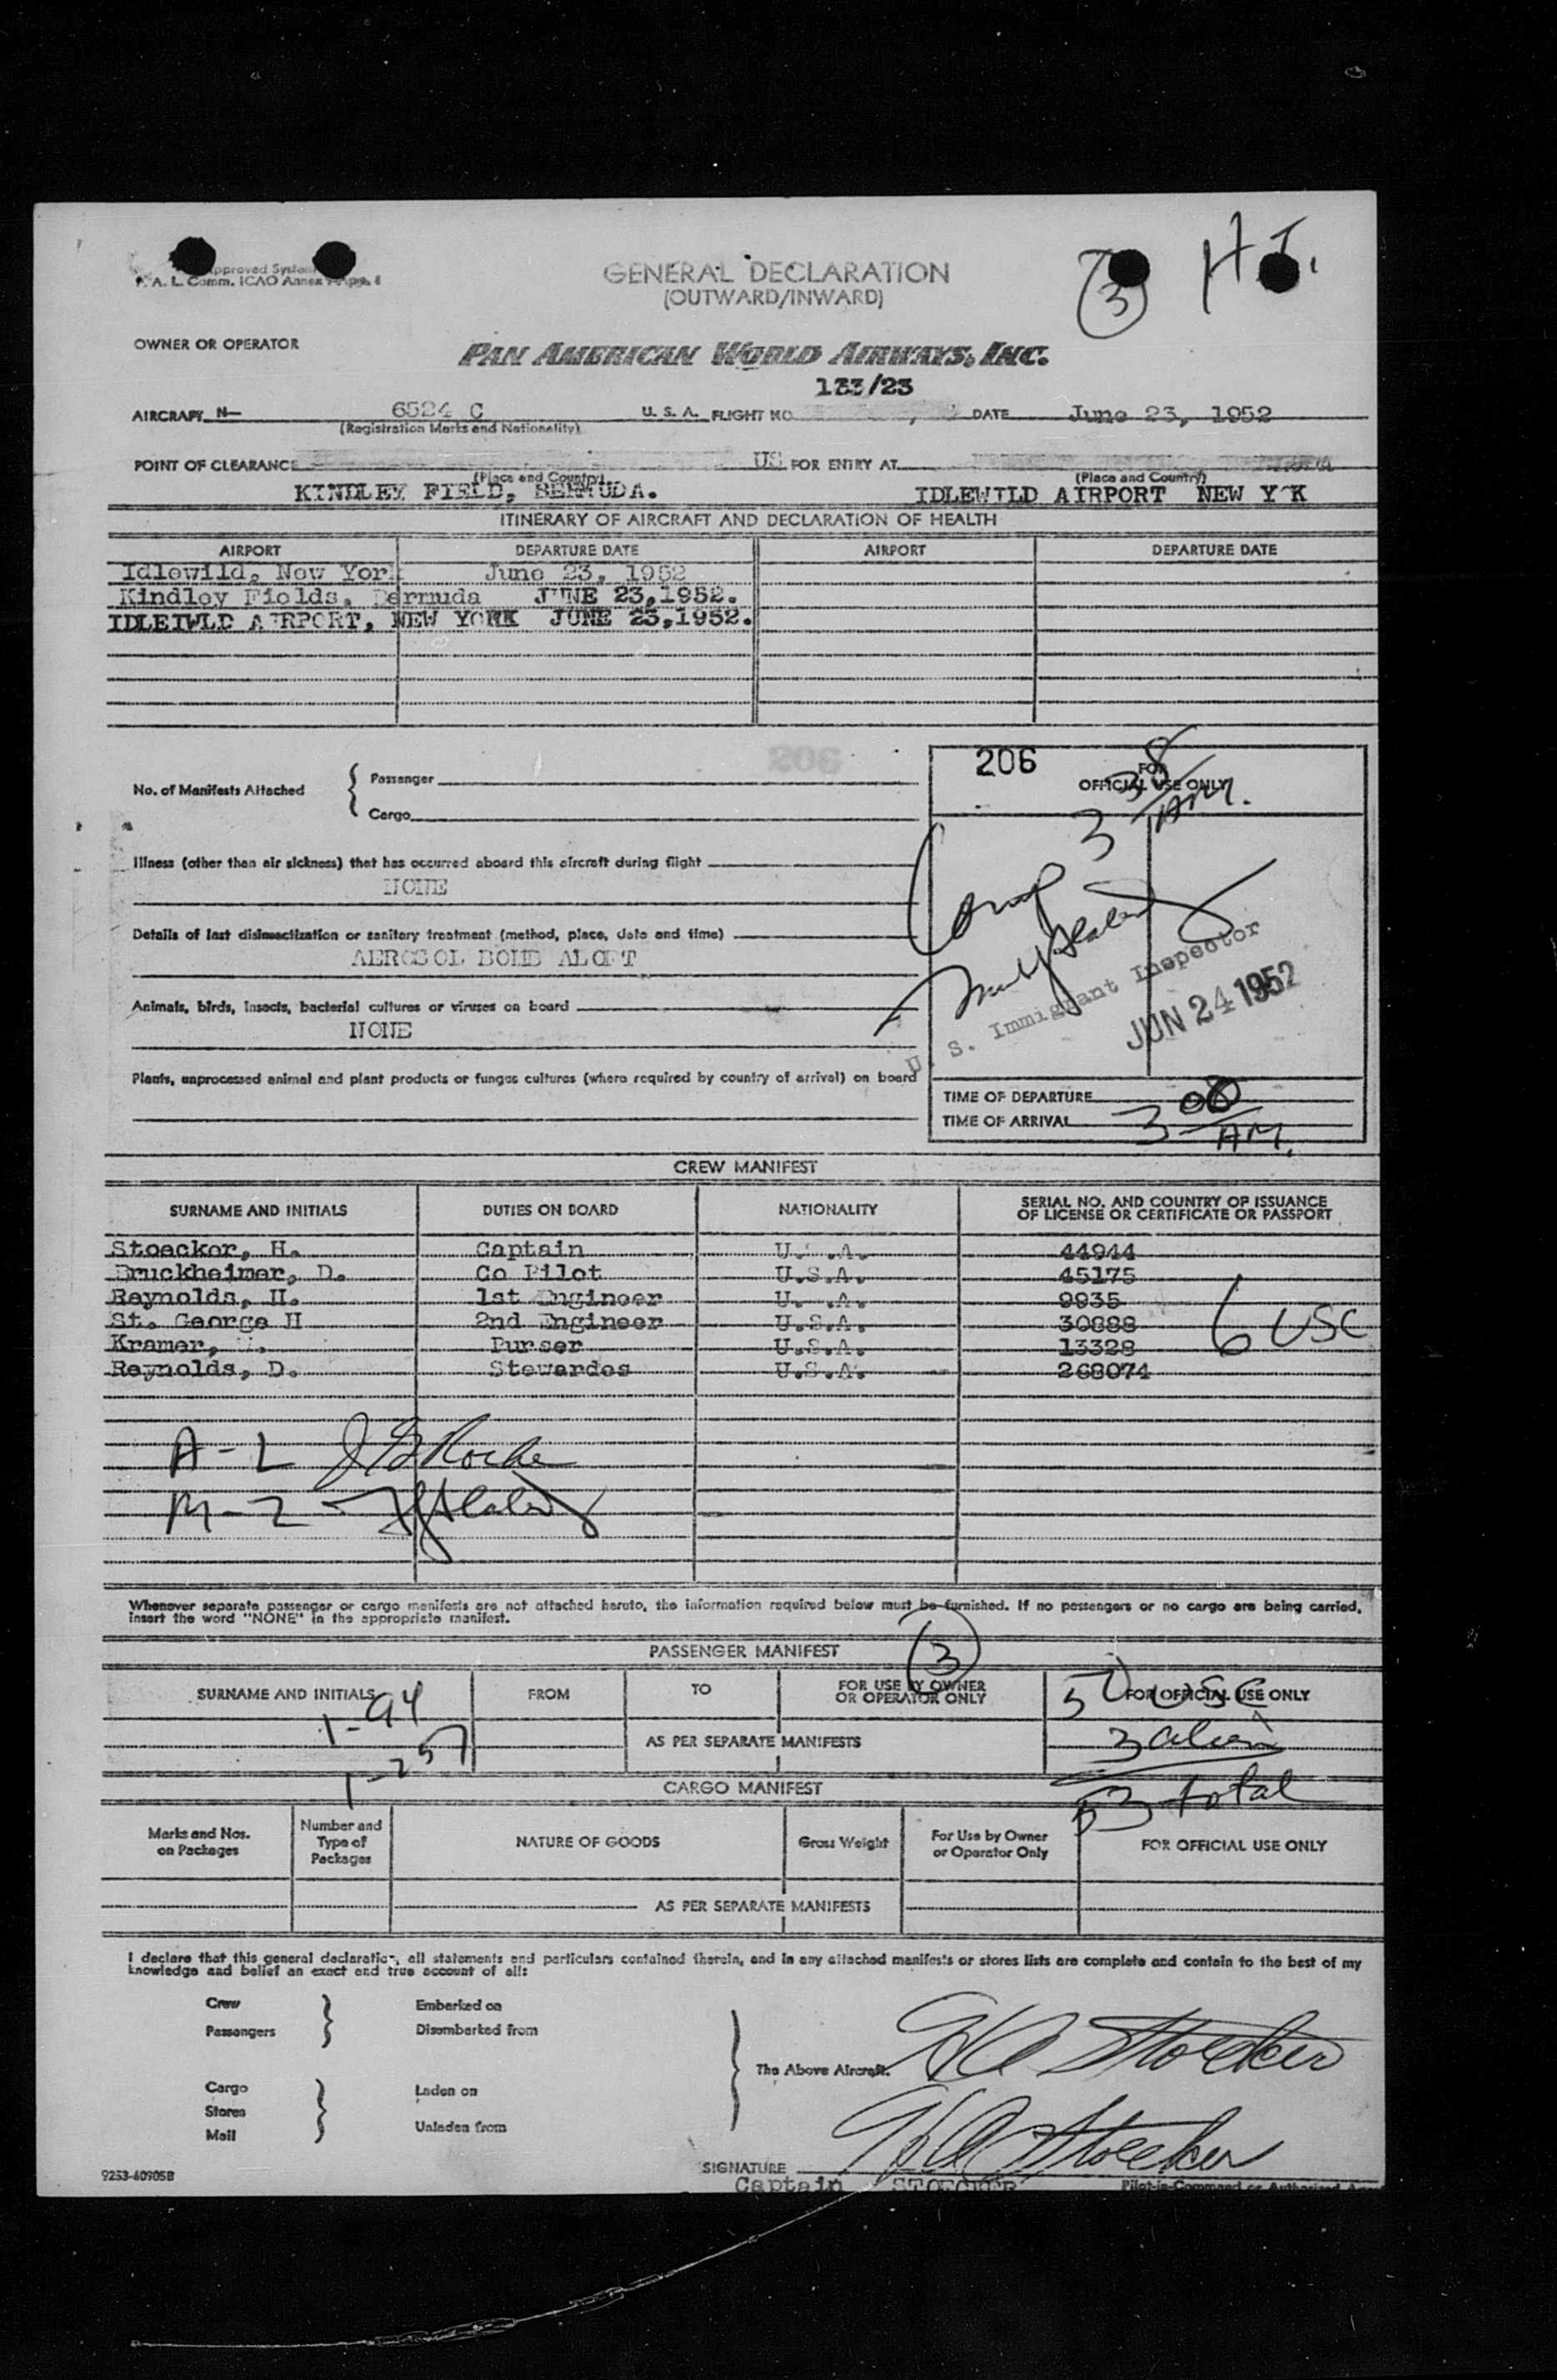 Approved System
A. L. Comm. ICAO Annex
GENERAL DECLARATION
(OUTWARD/INWARD)
3
H.I.
OWNER OR OPERATOR
PAN AMERICAN WORLD AIRWAYS, INC.
133/23
AIRCRAFT N— 6524 C U. S. A. FLIGHT NO. DATE June 23, 1952
(Registration Marks and Nationality)
POINT OF CLEARANCE US FOR ENTRY AT
(Place and Country) (Place and Country)
KINDLEY FIELD, BERMUDA. IDLEWILD AIRPORT NEW Y K
ITINERARY OF AIRCRAFT AND DECLARATION OF HEALTH
AIRPORT DEPARTURE DATE AIRPORT DEPARTURE DATE
Idlewild, New York June 23, 1952
Kindley Fields, Bermuda JUNE 23,1952.
IDLEIWLD A RPORT, NEW YORK JUNE 23,1952.
206
No. of Manifests Attached
Passenger
Cargo
206 FOR
OFFICIAL USE ONLY
3 38 AM.
Comp
Illness (other than air sickness) that has occurred aboard this aircraft during flight
NONE
Details of last disinsectization or sanitary treatment (method, place, date and time)
AEROSOL BOMB ALOFT
Animals, birds, insects, bacterial cultures or viruses on board
NONE
Plants, unprocessed animal and plant products or fungus cultures (where required by country of arrival) on board
U. S. Immigrant Inspector
JUN 24 1952
TIME OF DEPARTURE
TIME OF ARRIVAL 3 00 AM.
CREW MANIFEST
SURNAME AND INITIALS DUTIES ON BOARD NATIONALITY SERIAL NO. AND COUNTRY OF ISSUANCE
OF LICENSE OR CERTIFICATE OR PASSPORT
Stoecker, H. Captain U. .A. 44944
Bruckheimer, D. Co Pilot U.S.A. 45175
Reynolds, H. 1st Engineer U. .A. 9935
St. George H 2nd Engineer U.S.A. 30888
Kramer, Purser U.S.A. 13328
Reynolds, D. Stewardes U.S.A. 268074
6 USC
A-L
M-2
Whenever separate passenger or cargo manifests are not attached hereto, the information required below must be furnished. If no passengers or no cargo are being carried,
insert the word "NONE" in the appropriate manifest.
PASSENGER MANIFEST
3
SURNAME AND INITIALS FROM TO FOR USE BY OWNER
OR OPERATOR ONLY FOR OFFICIAL USE ONLY
1-94
1-257
AS PER SEPARATE MANIFESTS
50 USC
3 alien
53 total
CARGO MANIFEST
Marks and Nos.
on Packages
Number and
Type of
Packages
NATURE OF GOODS
Gross Weight
For Use by Owner
or Operator Only
FOR OFFICIAL USE ONLY
AS PER SEPARATE MANIFESTS
I declare that this general declaration, all statements and particulars contained therein, and in any attached manifests or stores lists are complete and contain to the best of my
knowledge and belief an exact and true account of all:
Crew
Passengers
Embarked on
Disembarked from
Cargo
Stores
Mail
Laden on
Unladen from
The Above Aircraft.
HA Stoecker
HA Stoecker
SIGNATURE
Captain STOECKER Pilot-in-Command or Authorized
9253-60905B